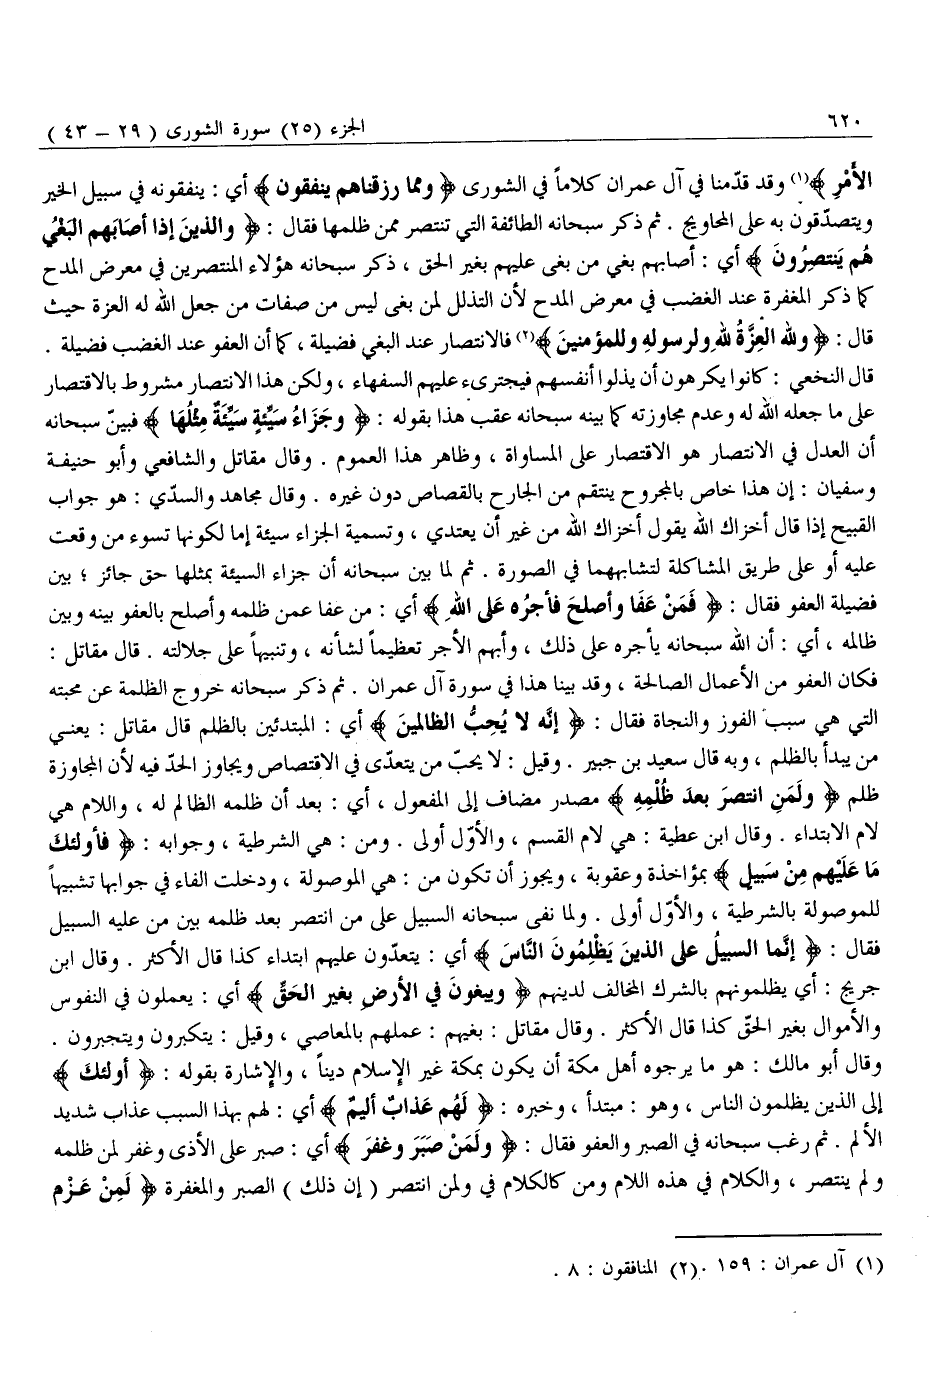 ٦٢٠
الجزء (٢٥) سورة الشورى ( ٢٩ – ٤٣ )
الأَمْرِ ﴾(١) وقد قدّمنا في آل عمران كلاماً في الشورى ﴿ ومما رزقناهم ينفقون ﴾ أي : ينفقونه في سبيل الخير
ويتصدّقون به على المحاويج . ثم ذكر سبحانه الطائفة التي تنتصر ممن ظلمها فقال : ﴿ والذينَ إذا أصَابَهم البَغْيُ
هُم يَنتصِرُونَ ﴾ أي : أصابهم بغي من بغى عليهم بغير الحق ، ذكر سبحانه هؤلاء المنتصرين في معرض المدح
كما ذكر المغفرة عند الغضب في معرض المدح لأن التذلل لمن بغى ليس من صفات من جعل الله له العزة حيث
قال : ﴿ ولله العِزَّةُ للهِ ولرسولهِ وللمؤمنينَ ﴾(٢) فالانتصار عند البغي فضيلة ، كما أن العفو عند الغضب فضيلة .
قال النخعي : كانوا يكرهون أن يذلوا أنفسهم فيجترىء عليهم السفهاء ، ولكن هذا الانتصار مشروط بالاقتصار
على ما جعله الله له وعدم مجاوزته كما بينه سبحانه عقب هذا بقوله : ﴿ وجَزَاءُ سَيِّئةٍ سَيِّئَةٌ مِثْلُهَا ﴾ فبينّ سبحانه
أن العدل في الانتصار هو الاقتصار على المساواة ، وظاهر هذا العموم . وقال مقاتل والشافعي وأبو حنيفة
وسفيان : إن هذا خاص بالمجروح ينتقم من الجارح بالقصاص دون غيره . وقال مجاهد والسدّي : هو جواب
القبيح إذا قال أخزاك الله يقول أخزاك الله من غير أن يعتدي ، وتسمية الجزاء سيئة إما لكونها تسوء من وقعت
عليه أو على طريق المشاكلة لتشابههما في الصورة . ثم لما بين سبحانه أن جزاء السيئة بمثلها حق جائز ؛ بين
فضيلة العفو فقال : ﴿ فَمَنْ عَفَا وأصلحَ فأجرُه عَلى اللهِ ﴾ أي : من عفا عمن ظلمه وأصلح بالعفو بينه وبين
ظالمه ، أي : أن الله سبحانه يأجره على ذلك ، وأبهم الأجر تعظيماً لشأنه ، وتنبيهاً على جلالته . قال مقاتل :
فكان العفو من الأعمال الصالحة ، وقد بينا هذا في سورة آل عمران . ثم ذكر سبحانه خروج الظلمة عن محبته
التي هي سبب الفوز والنجاة فقال : ﴿ إنَّه لا يُحِبُّ الظالمينَ ﴾ أي : المبتدئين بالظلم قال مقاتل : يعني
من يبدأ بالظلم ، وبه قال سعيد بن جبير . وقيل : لا يحبّ من يتعدّى في الاقتصاص ويجاوز الحدّ فيه لأن المجاوزة
ظلم ﴿ ولَمَنِ انتصرَ بعدَ ظُلْمِهِ ﴾ مصدر مضاف إلى المفعول ، أي : بعد أن ظلمه الظالم له ، واللام هي
لام الابتداء . وقال ابن عطية : هي لام القسم ، والأوّل أولى . ومن : هي الشرطية ، وجوابه : ﴿ فأولئكَ
مَا عَلَيْهم مِنْ سَبيلٍ ﴾ بمؤاخذة وعقوبة ، ويجوز أن تكون من : هي الموصولة ، ودخلت الفاء في جوابها تشبيهاً
للموصولة بالشرطية ، والأوّل أولى . ولما نفى سبحانه السبيل على من انتصر بعد ظلمه بين من عليه السبيل
فقال : ﴿ إنَّما السبيلُ على الذينَ يَظْلِمُونَ النَّاسَ ﴾ أي : يتعدّون عليهم ابتداء كذا قال الأكثر . وقال ابن
جريج : أي يظلمونهم بالشرك المخالف لدينهم ﴿ ويبغونَ في الأرضِ بغير الحَقِّ ﴾ أي : يعملون في النفوس
والأموال بغير الحقّ كذا قال الأكثر . وقال مقاتل : بغيهم : عملهم بالمعاصي ، وقيل : يتكبرون ويتجبرون .
وقال أبو مالك : هو ما يرجوه أهل مكة أن يكون بمكة غير الإسلام ديناً ، والإشارة بقوله : ﴿ أولئكَ ﴾
إلى الذين يظلمون الناس ، وهو : مبتدأ ، وخبره : ﴿ لَهُم عَذابٌ أليمٌ ﴾ أي : لهم بهذا السبب عذاب شديد
الألم . ثم رغب سبحانه في الصبر والعفو فقال : ﴿ ولَمَنْ صَبَرَ وغفرَ ﴾ أي : صبر على الأذى وغفر لمن ظلمه
ولم ينتصر ، والكلام في هذه اللام ومن كالكلام في ولمن انتصر ( إن ذلك ) الصبر والمغفرة ﴿ لَمِنْ عَزْم
(١) آل عمران : ١٥٩ .(٢) المنافقون : ٨ .